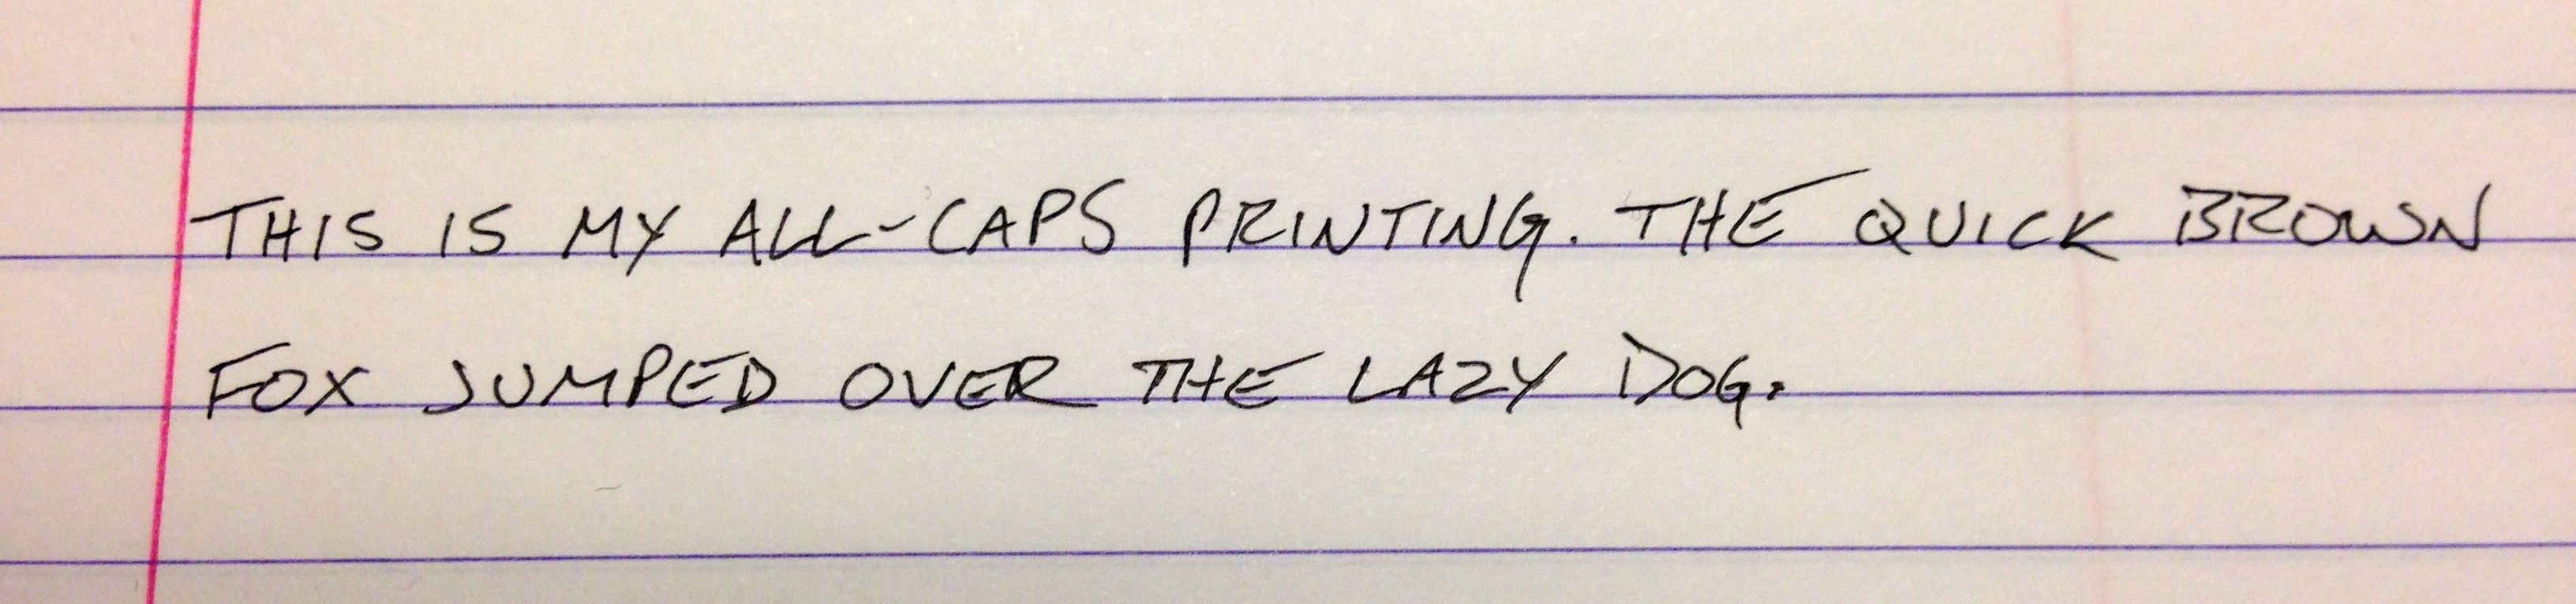 THIS IS MY ALL-CAPS PRINTING. THE QUICK BROWN
FOX JUMPED OVER THE LAZY DOG.